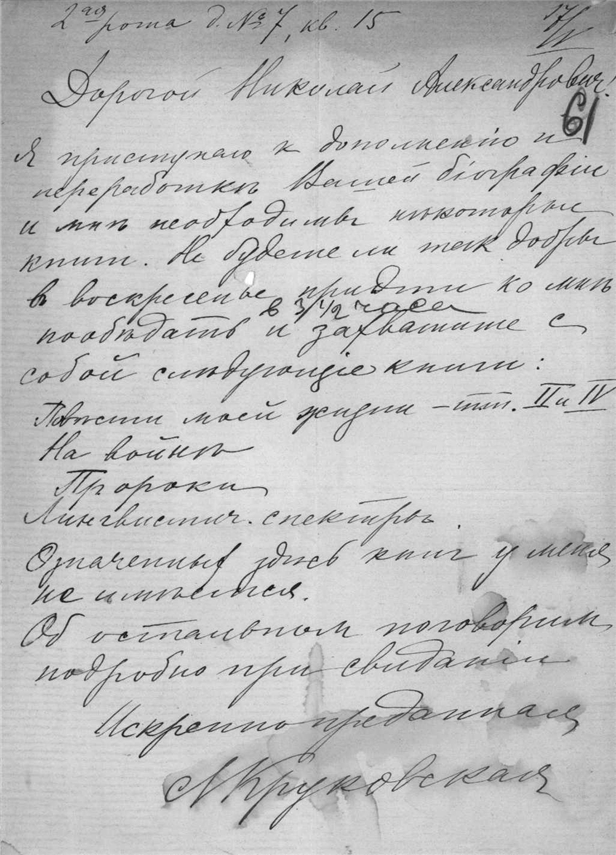 2ая рота д. № 7, кв. 15
17/IV
Дорогой Николай Александрович!
61
Я приступаю к дополненію и
переработкѣ Вашей біографіи
и мнѣ необходимы нѣкоторые
книги. Не будете ли так добры
в воскресенье придти ко мнѣ
в 3 1/2 часа
пообѣдать и захватите с
собой слѣдующіе книги:
Повѣсти моей жизни – т.т. II и IV
На войнѣ
Пророки
Лингвистич. спектры.
Означенных здѣсь книг у меня
не имѣется.
Об остальном поговорим
подробно при свиданіи
Искренно преданная
Л Круковская